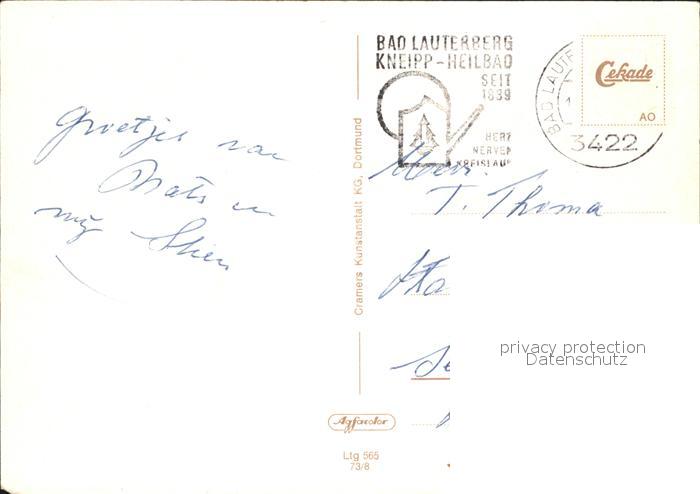 BAD LAUTERBERG
KNEIPP-HEILBAD
SEIT
1839
HERZ
NERVEN
KREISLAUF
BAD LAUTE
3422
Cekade
AO
Groetjes van
en
mij Stien
Cramers Kunstanstalt KG, Dortmund
T. Thoma
privacy protection
Datenschutz
Agfacolor
Ltg 565
73/8